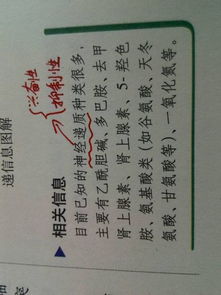 兴奋性
抑制性
递信息图解
相关信息
目前已知的神经递质种类很多,
主要有乙酰胆碱、多巴胺、去甲
肾上腺素、肾上腺素、5-羟色
胺、氨基酸类(如谷氨酸、天冬
氨酸、甘氨酸等)、一氧化氮等。